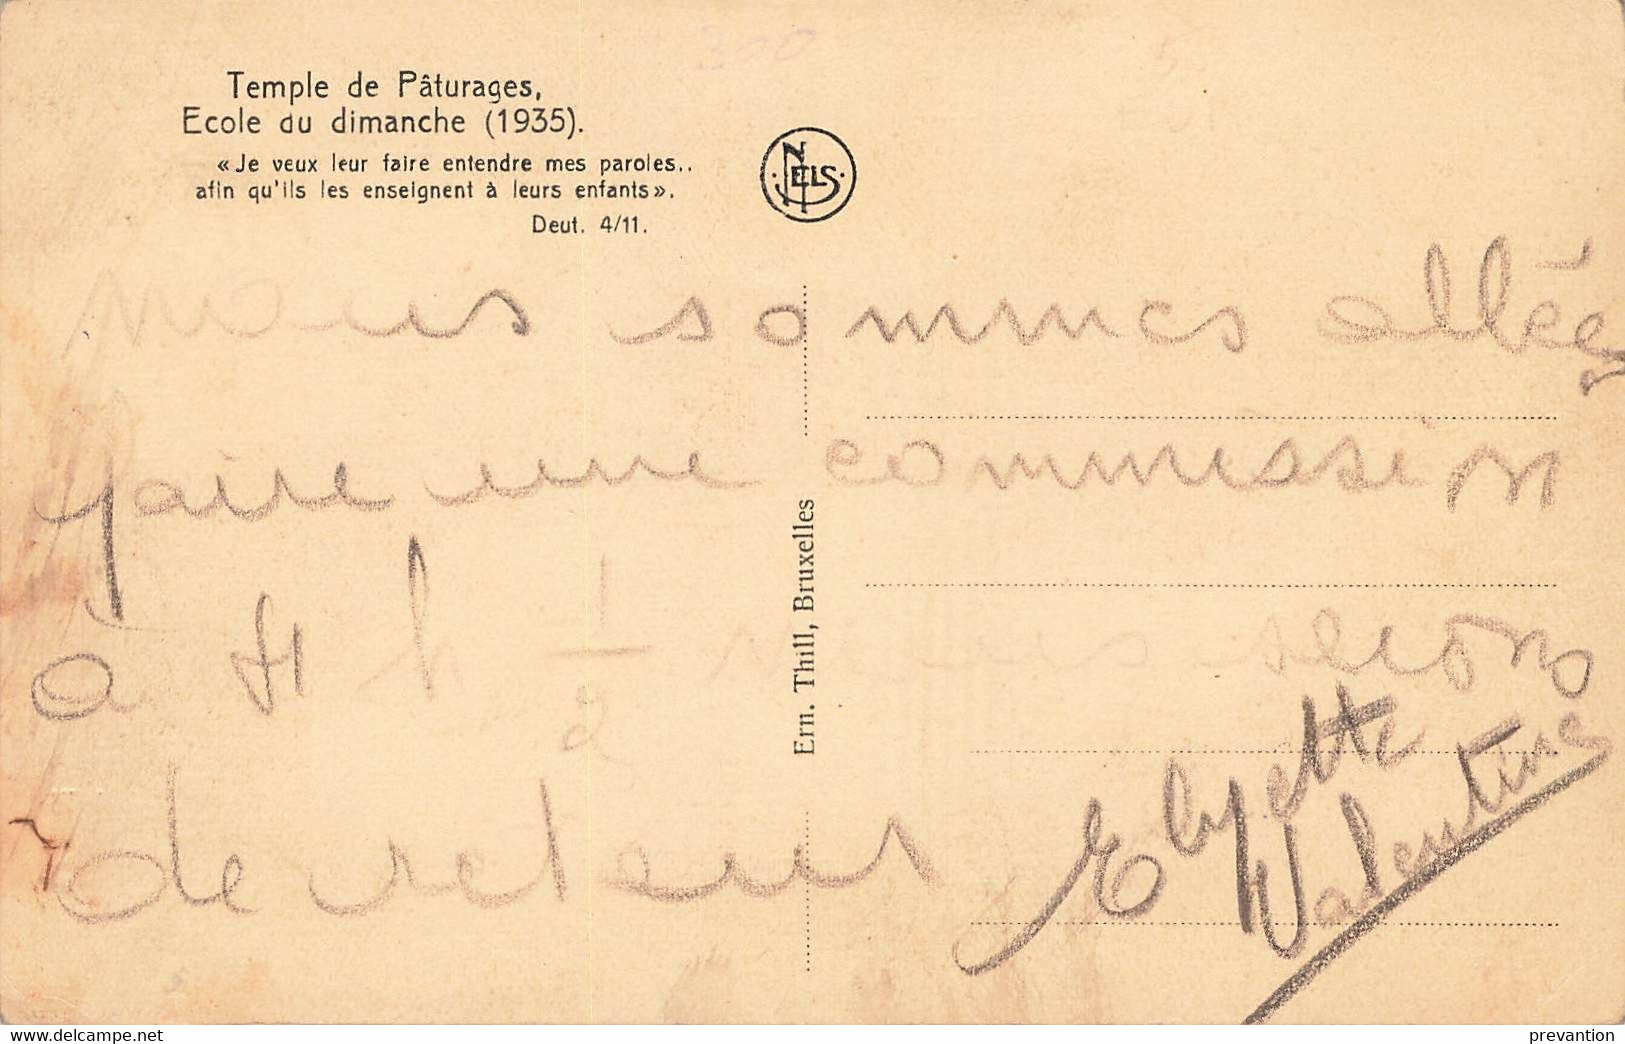 300
Temple de Pâturages,
Ecole du dimanche (1935).
«Je veux leur faire entendre mes paroles..
afin qu'ils les enseignent à leurs enfants».
Deut. 4/11.
NELS
nous sommes allées
faire une commission
à h 1/2 serons
de retour
Valentine
Ern. Thill, Bruxelles
delcampe.net
prevantion